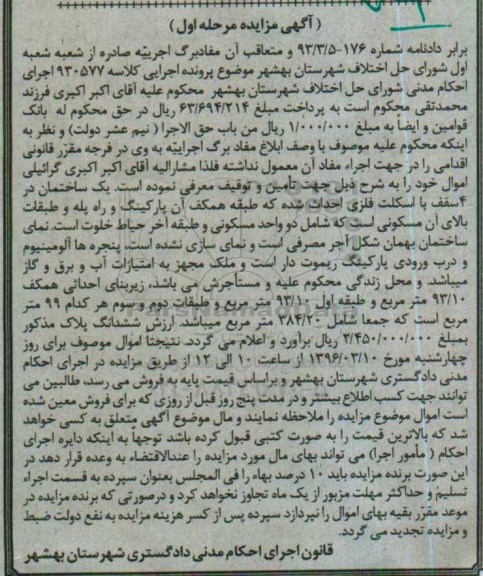 ( آگهی مزایده مرحله اول )
برابر دادنامه شماره ۱۷۶-۹۳/۳/۵ و متعاقب آن مفادبرگ اجرییّه صادره از شعبه شعبه
اول شورای حل اختلاف شهرستان بهشهر موضوع پرونده اجرایی کلاسه ۹۳۰۵۷۷ اجرای
احکام مدنی شورای حل اختلاف شهرستان بهشهر محکوم علیه آقای اکبر اکبری فرزند
محمدتقی محکوم است به پرداخت مبلغ ۶۳/۶۹۴/۲۱۴ ریال در حق محکوم له بانک
قوامین و ایضاً به مبلغ ۱/۰۰۰/۰۰۰ ریال من باب حق الاجرا ( نیم عشر دولت) و نظر به
اینکه محکوم علیه موصوف با وصف ابلاغ مفاد برگ اجراییّه به وی در فرجه مقرّر قانونی
اقدامی را در جهت اجراء مفاد آن معمول نداشته فلذا مشارالیه آقای اکبر اکبری گرائیلی
اموال خود را به شرح ذیل جهت تأمین و توقیف معرفی نموده است. یک ساختمان در
۴سقف با اسکلت فلزی احداث شده که طبقه همکف آن پارکینگ و راه پله و طبقات
بالای آن مسکونی است که شامل دو واحد مسکونی و طبقه آخر حیاط خلوت است. نمای
ساختمان بهمان شکل آجر مصرفی است و نمای سازی نشده است، پنجره ها آلومینیوم
و درب ورودی پارکینگ ریموت دار است و ملک مجهز به امتیازات آب و برق و گاز
میباشد. و محل زندگی محکوم علیه و مستأجرش می باشد، زیربنای احداثی همکف
۹۳/۱۰ متر مربع و طبقه اول ۹۳/۱۰ متر مربع و طبقات دوم و سوم هر کدام ۹۹ متر
مربع است که جمعا شامل ۳۸۴/۲۰ متر مربع میباشد. ارزش ششدانگ پلاک مذکور
بمبلغ ۲/۴۵۰/۰۰۰/۰۰۰ ریال برآورد و اعلام می گردد. نتیجتاً اموال موصوف برای روز
چهارشنبه مورخ ۱۳۹۶/۰۳/۱۰ از ساعت ۱۰ الی ۱۲ از طریق مزایده در اجرای احکام
مدنی دادگستری شهرستان بهشهر و براساس قیمت پایه به فروش می رسد، طالبین می
توانند جهت کسب اطلاع بیشتر و در مدت پنج روز قبل از روزی که برای فروش معین شده
است اموال موضوع مزایده را ملاحظه نمایند و مال موضوع آگهی متعلق به کسی خواهد
شد که بالاترین قیمت را به صورت کتبی قبول کرده باشد توجهاً به اینکه دایره اجرای
احکام ( مأمور اجرا) می تواند بهای مال مورد مزایده را عندالاقتضاء به وعده قرار دهد در
این صورت برنده مزایده باید ۱۰ درصد بهاء را فی المجلس بعنوان سپرده به قسمت اجراء
تسلیم و حداکثر مهلت مزبور از یک ماه تجاوز نخواهد کرد و درصورتی که برنده مزایده در
موعد مقرّر بقیه بهای اموال را نپردازد سپرده پس از کسر هزینه مزایده به نفع دولت ضبط
و مزایده تجدید می گردد.
قانون اجرای احکام مدنی دادگستری شهرستان بهشهر